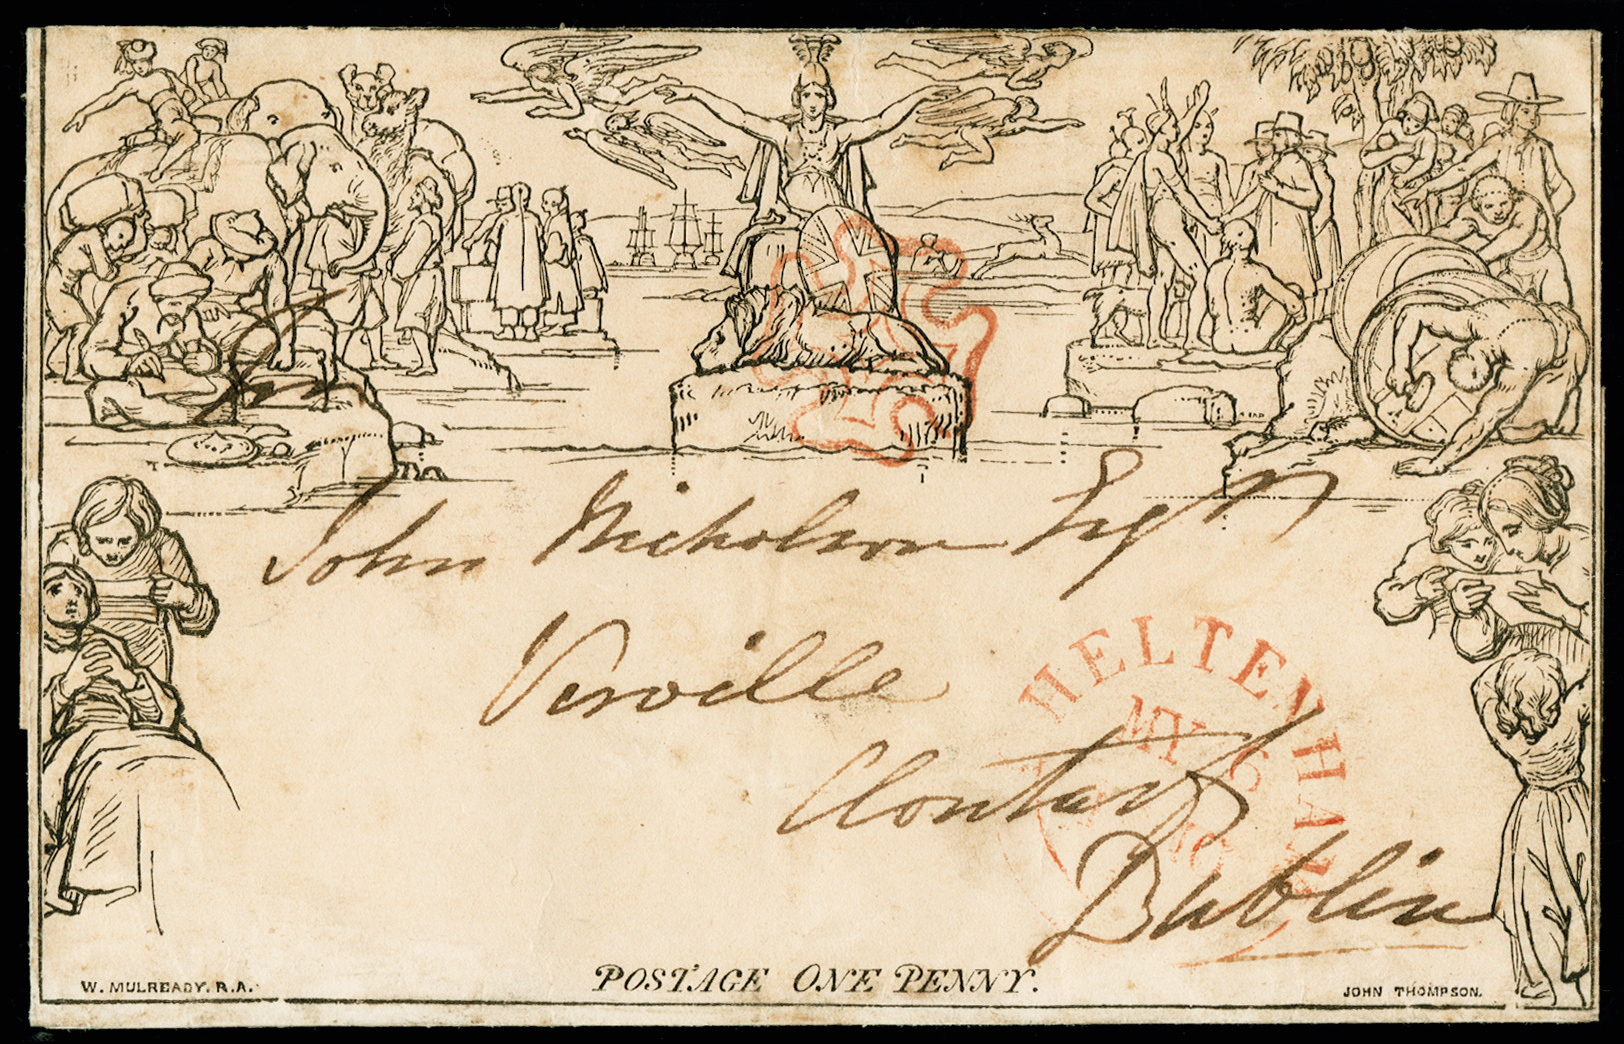 John Nicholson Esqr
Verville
Clontarf
Dublin
CHELTENHAM
MY 6
W. MULREADY. R.A.
POSTAGE ONE PENNY.
JOHN THOMPSON.